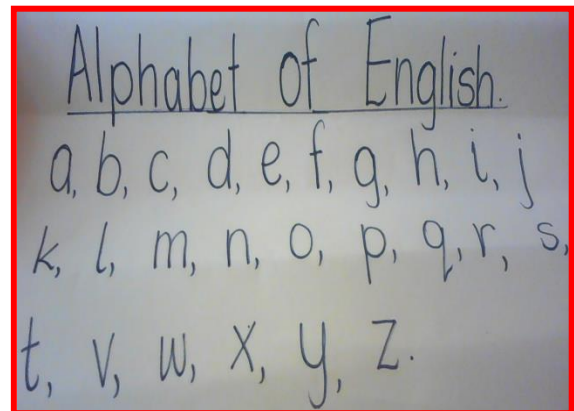 Alphabet of English.
a, b, c, d, e, f, g, h, i, j
k, l, m, n, o, p, q, r, s,
t, v, w, x, y, z.